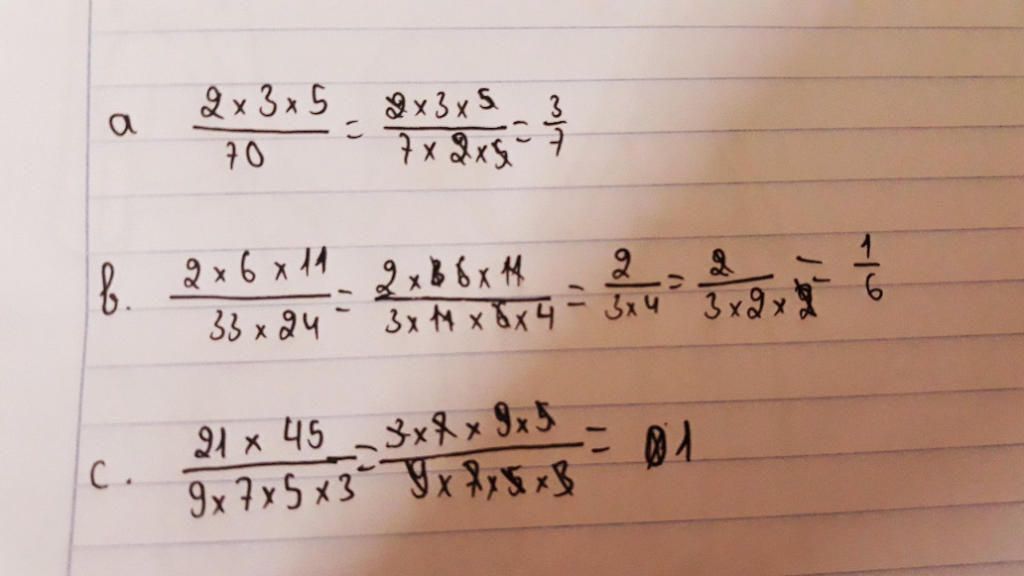 a (2 × 3 × 5)/70 = (2 × 3 × 5)/(7 × 2 × 5) = 3/7
b. (2 × 6 × 11)/(33 × 24) = (2 × 6 × 11)/(3 × 11 × 6 × 4) = 2/(3 × 4) = 2/(3 × 2 × 2) = 1/6
c. (21 × 45)/(9 × 7 × 5 × 3) = (3 × 7 × 9 × 5)/(9 × 7 × 5 × 3) = 1